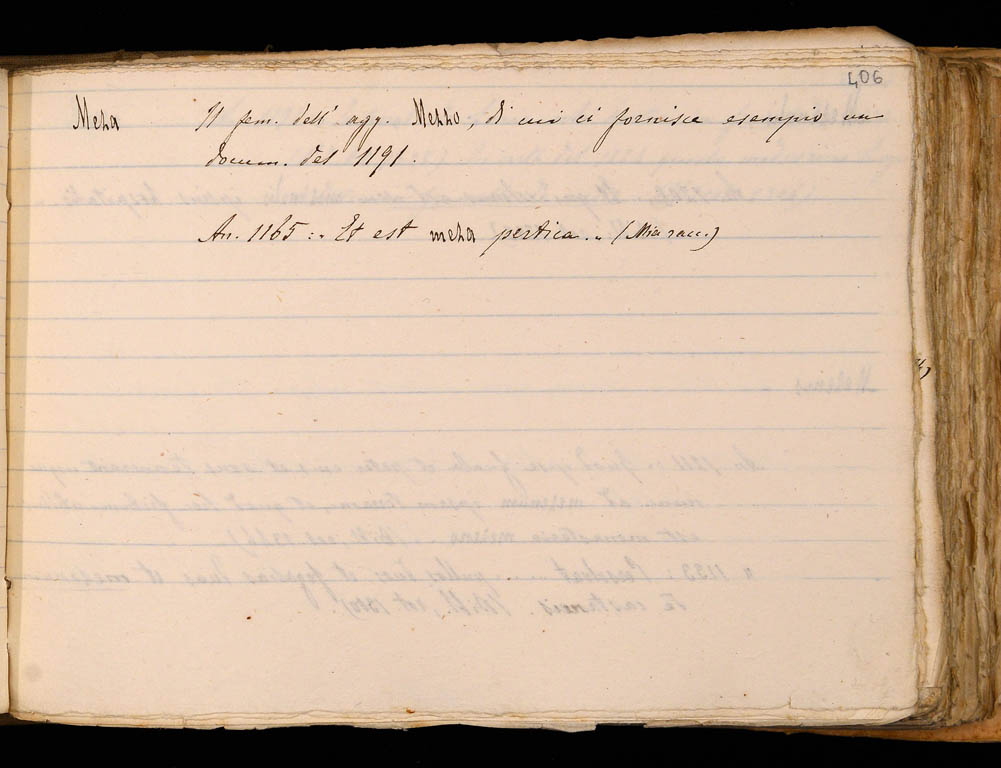 406
Meza Il fem. dell' agg. Mezzo, di cui ci fornisce esempio un
docum. del 1191.
An. 1165: „ Et est meza pertica. „ (Mia racc.)